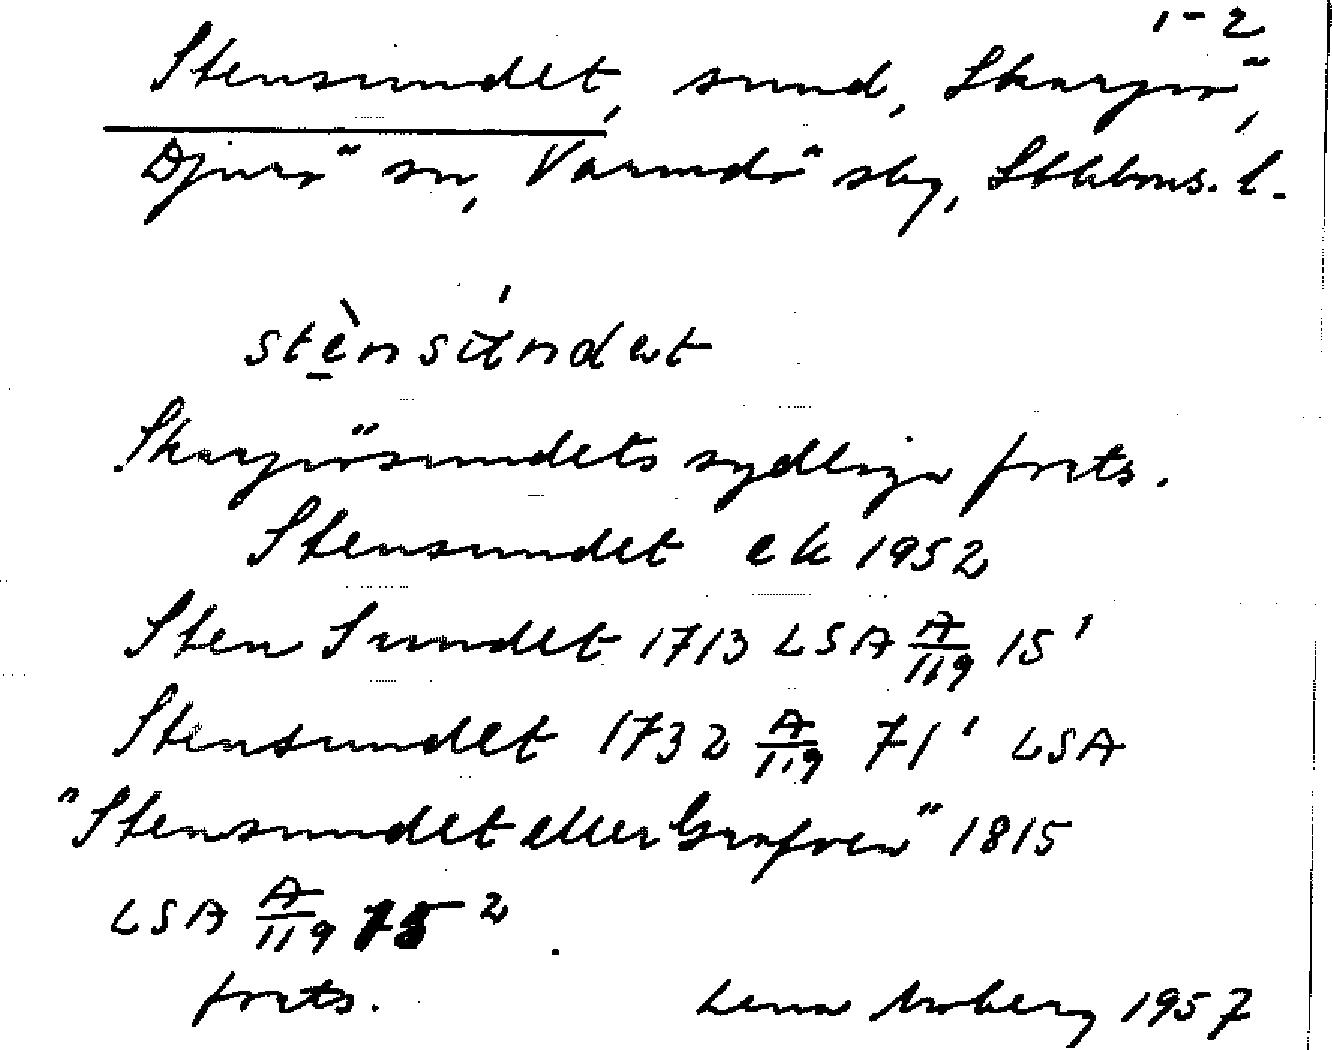 1-2
Stensundet, sund, Skarpö,
Djurö sn, Värmdö skg, Sthlms. l.
stènsúndet
Skarpösundets sydliga forts.
Stensundet ek 1952
Sten Sundet 1713 LSA A/119 15'
Stensundet 1732 A/119 71' LSA
"Stensundet eller Grafven" 1815
LSA A/119 75²
forts. Lena Moberg 1957